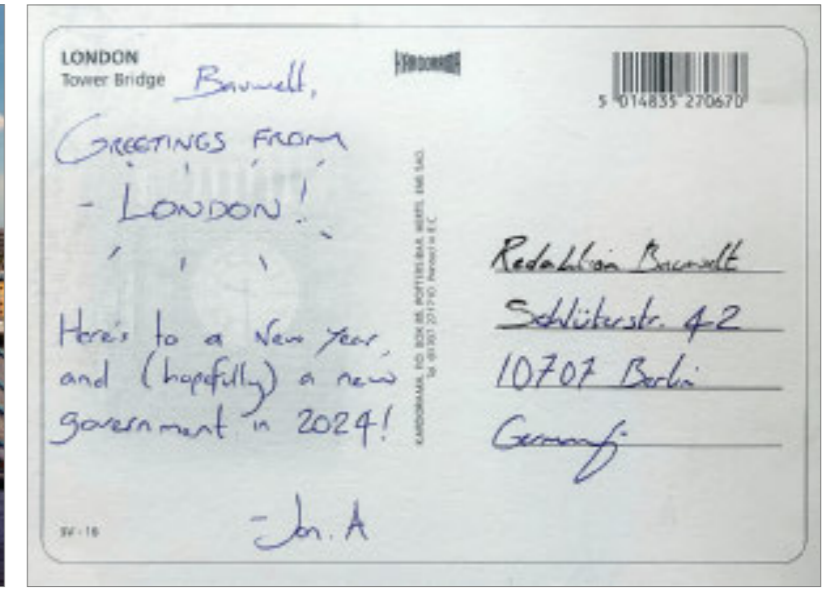 LONDON
Tower Bridge
Bauwelt,
GREETINGS FROM
- LONDON!
Here's to a New Year,
and (hopefully) a new
government in 2024!
- Jon. A
SV - 16
KARDORAMA
KARDORAMA, P.O. BOX 85, POTTERS BAR, HERTS. EN6 5AD.
Printed in E.C.
5 014835 270670
Redaktion Bauwelt
Schlüterstr. 42
10707 Berlin
Germany